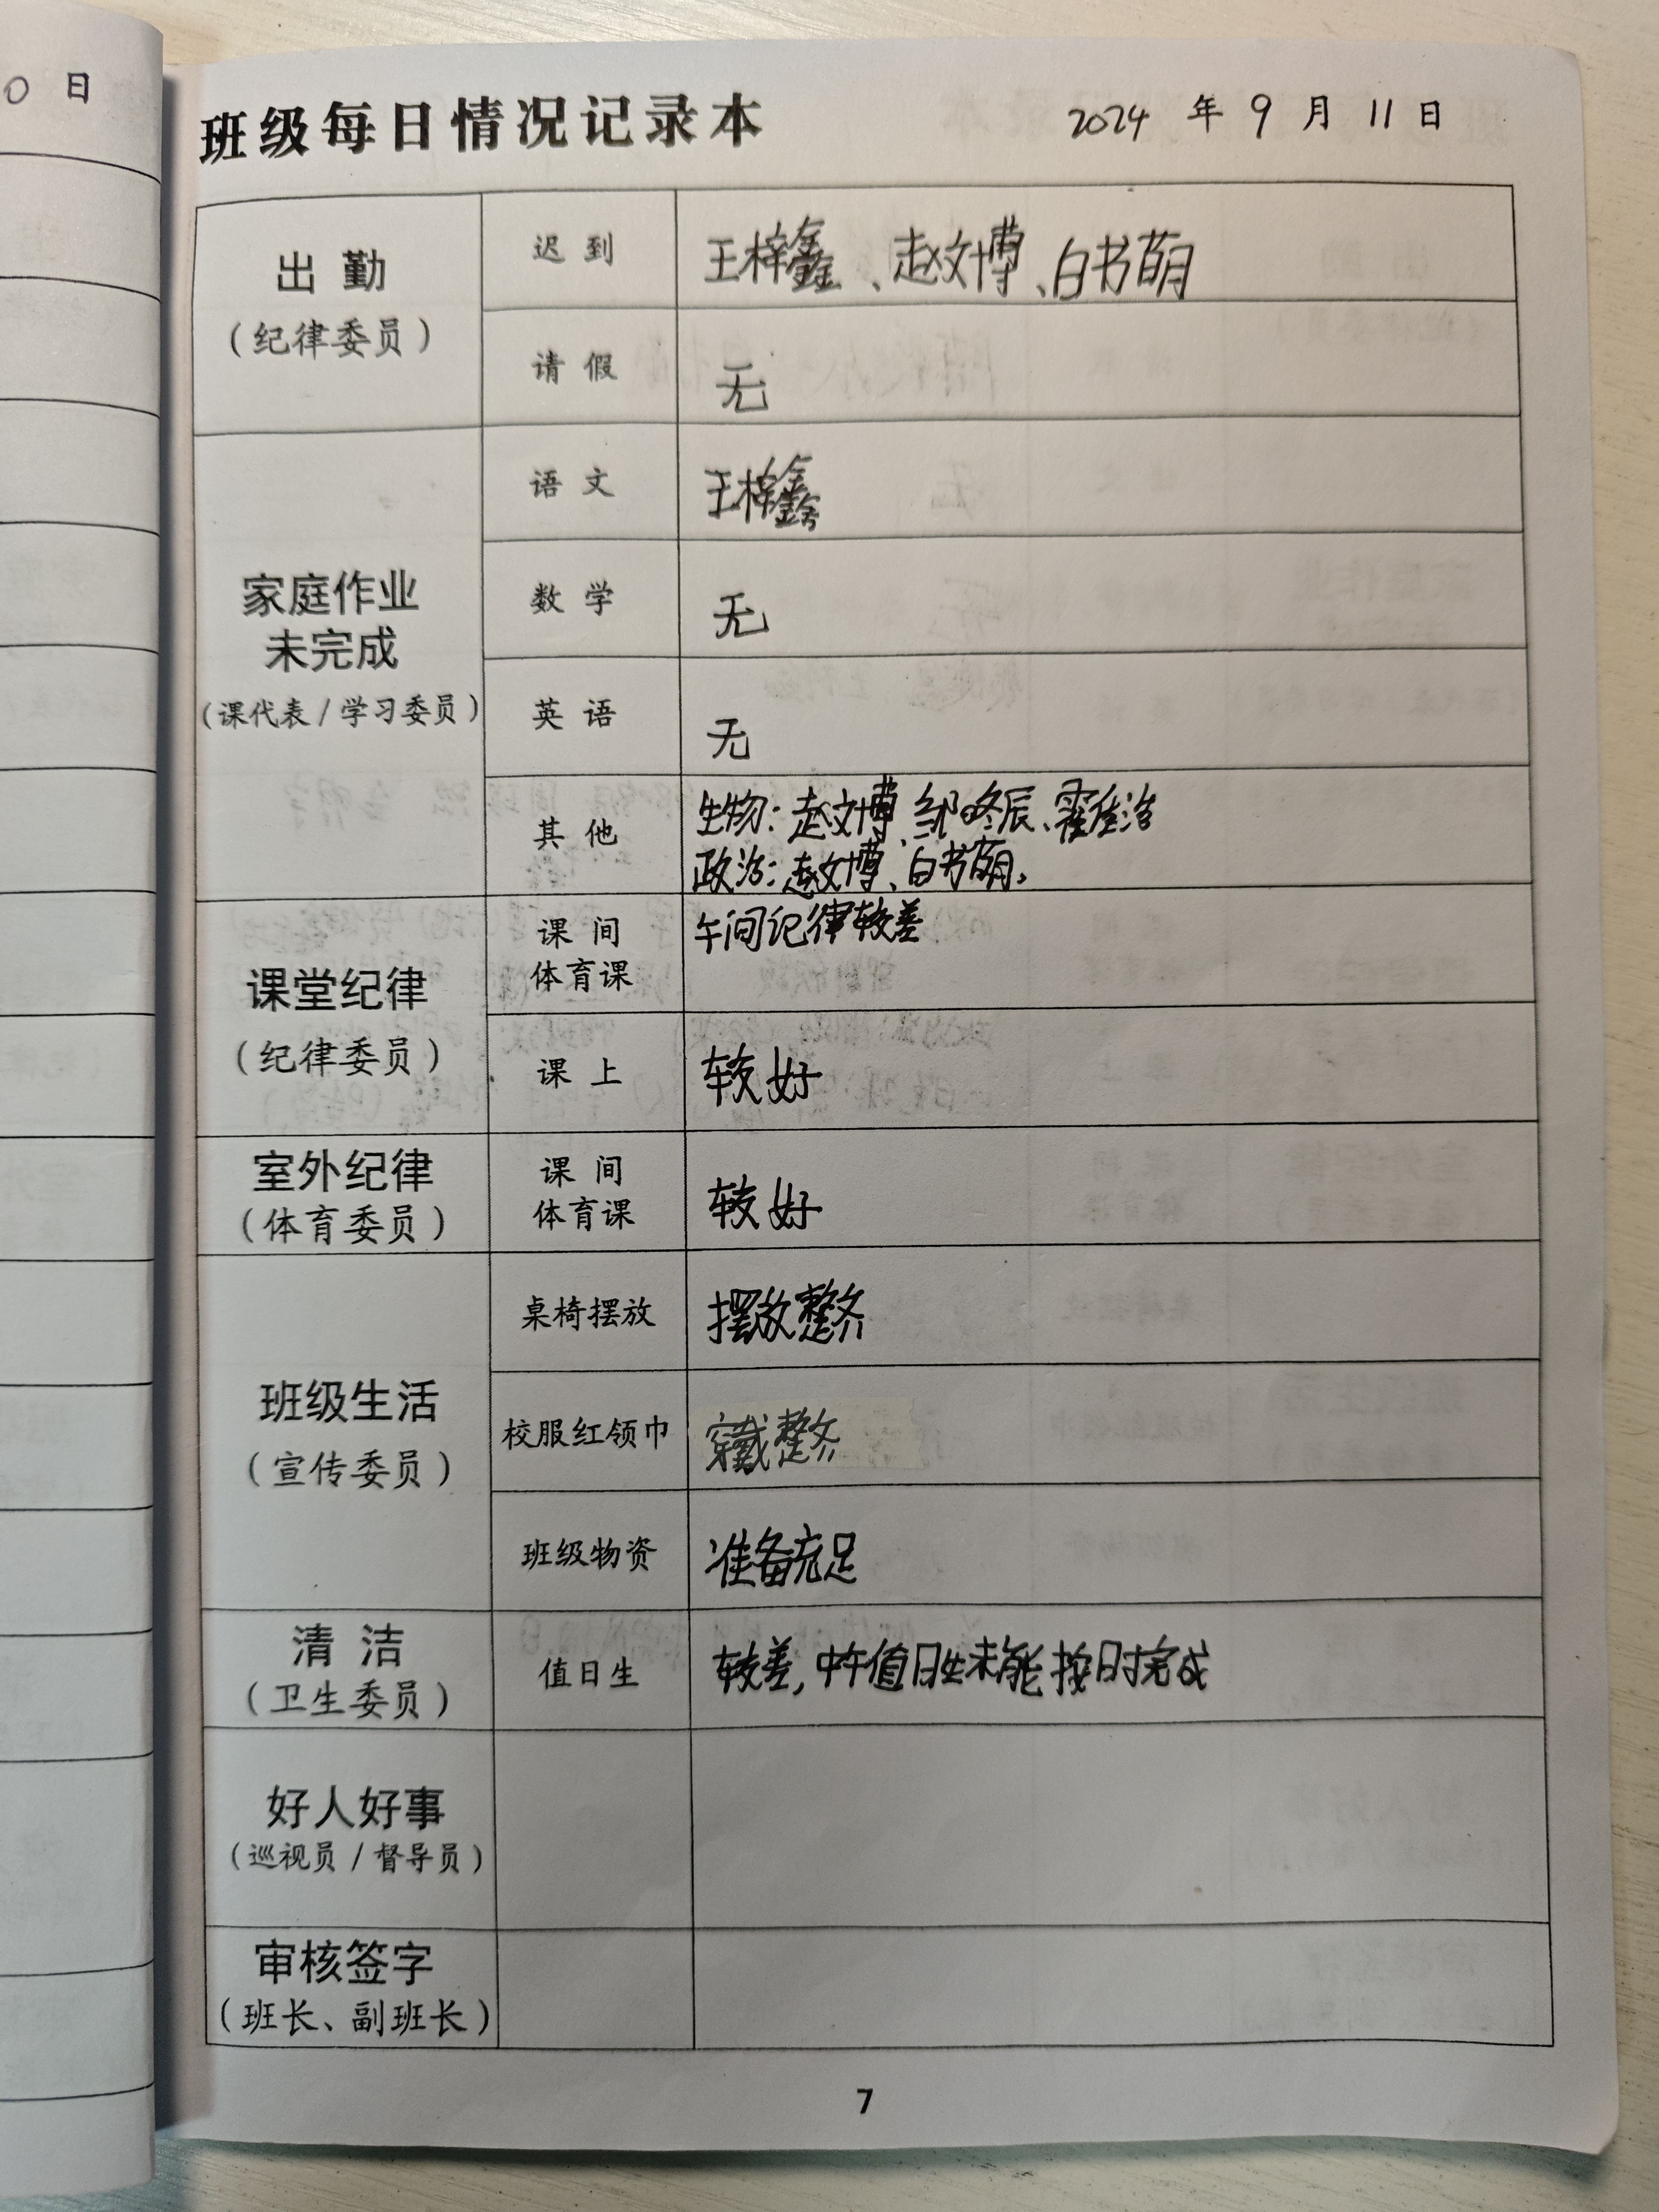 0 日
班级每日情况记录本 2024 年 9 月 11 日
出 勤
（纪律委员）
迟 到
王梓鑫、赵文博、白书萌
请 假
无
家庭作业
未完成
（课代表 / 学习委员）
语 文
王梓鑫
数 学
无
英 语
无
其 他
生物：赵文博、邹咚辰、霍佳浩
政治：赵文博、白书萌。
课堂纪律
（纪律委员）
课 间
体育课
午间记律较差
课 上
较好
室外纪律
（体育委员）
课 间
体育课
较好
班级生活
（宣传委员）
桌椅摆放
摆放整齐
校服红领巾
穿戴整齐
班级物资
准备充足
清 洁
（卫生委员）
值日生
较差，中午值日生未能按时完成
好人好事
（巡视员 / 督导员）
审核签字
（班长、副班长）
7